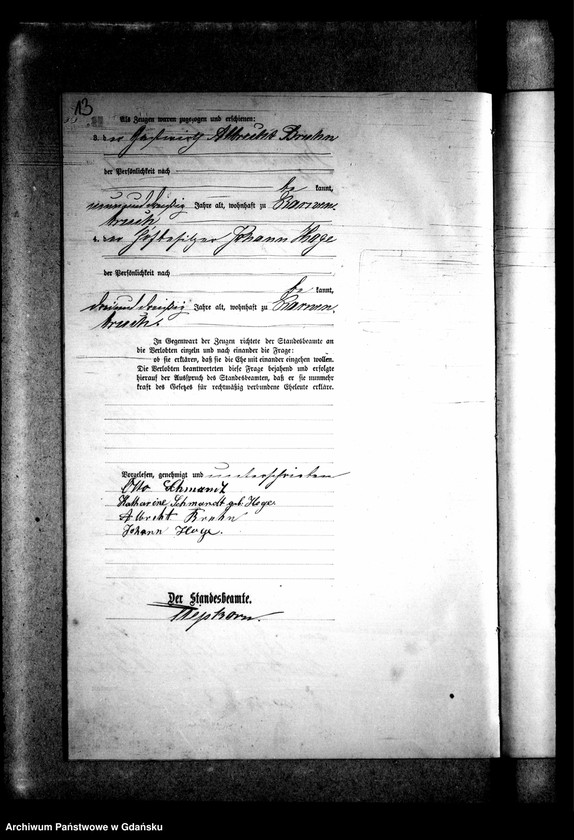 13
Als Zeugen waren zugezogen und erschienen:
3. der Gastwirth Albrecht Bruhn
der Persönlichkeit nach
be kannt,
neununddreißig Jahre alt, wohnhaft zu Karwen-
bruch
4. der Hofbesitzer Johann Hoge
der Persönlichkeit nach
be kannt,
dreiunddreißig Jahre alt, wohnhaft zu Karwen-
bruch.
In Gegenwart der Zeugen richtete der Standesbeamte an
die Verlobten einzeln und nach einander die Frage:
ob sie erklären, daß sie die Ehe mit einander eingehen wollen.
Die Verlobten beantworteten diese Frage bejahend und erfolgte
hierauf der Ausspruch des Standesbeamten, daß er sie nunmehr
kraft des Gesetzes für rechtmäßig verbundene Eheleute erkläre.
Vorgelesen, genehmigt und unterschrieben
Otto Schmandt
Katharine Schmandt geb. Hoge
Albrecht Bruhn
Johann Hoge.
Der Standesbeamte.
Archiwum Państwowe w Gdańsku